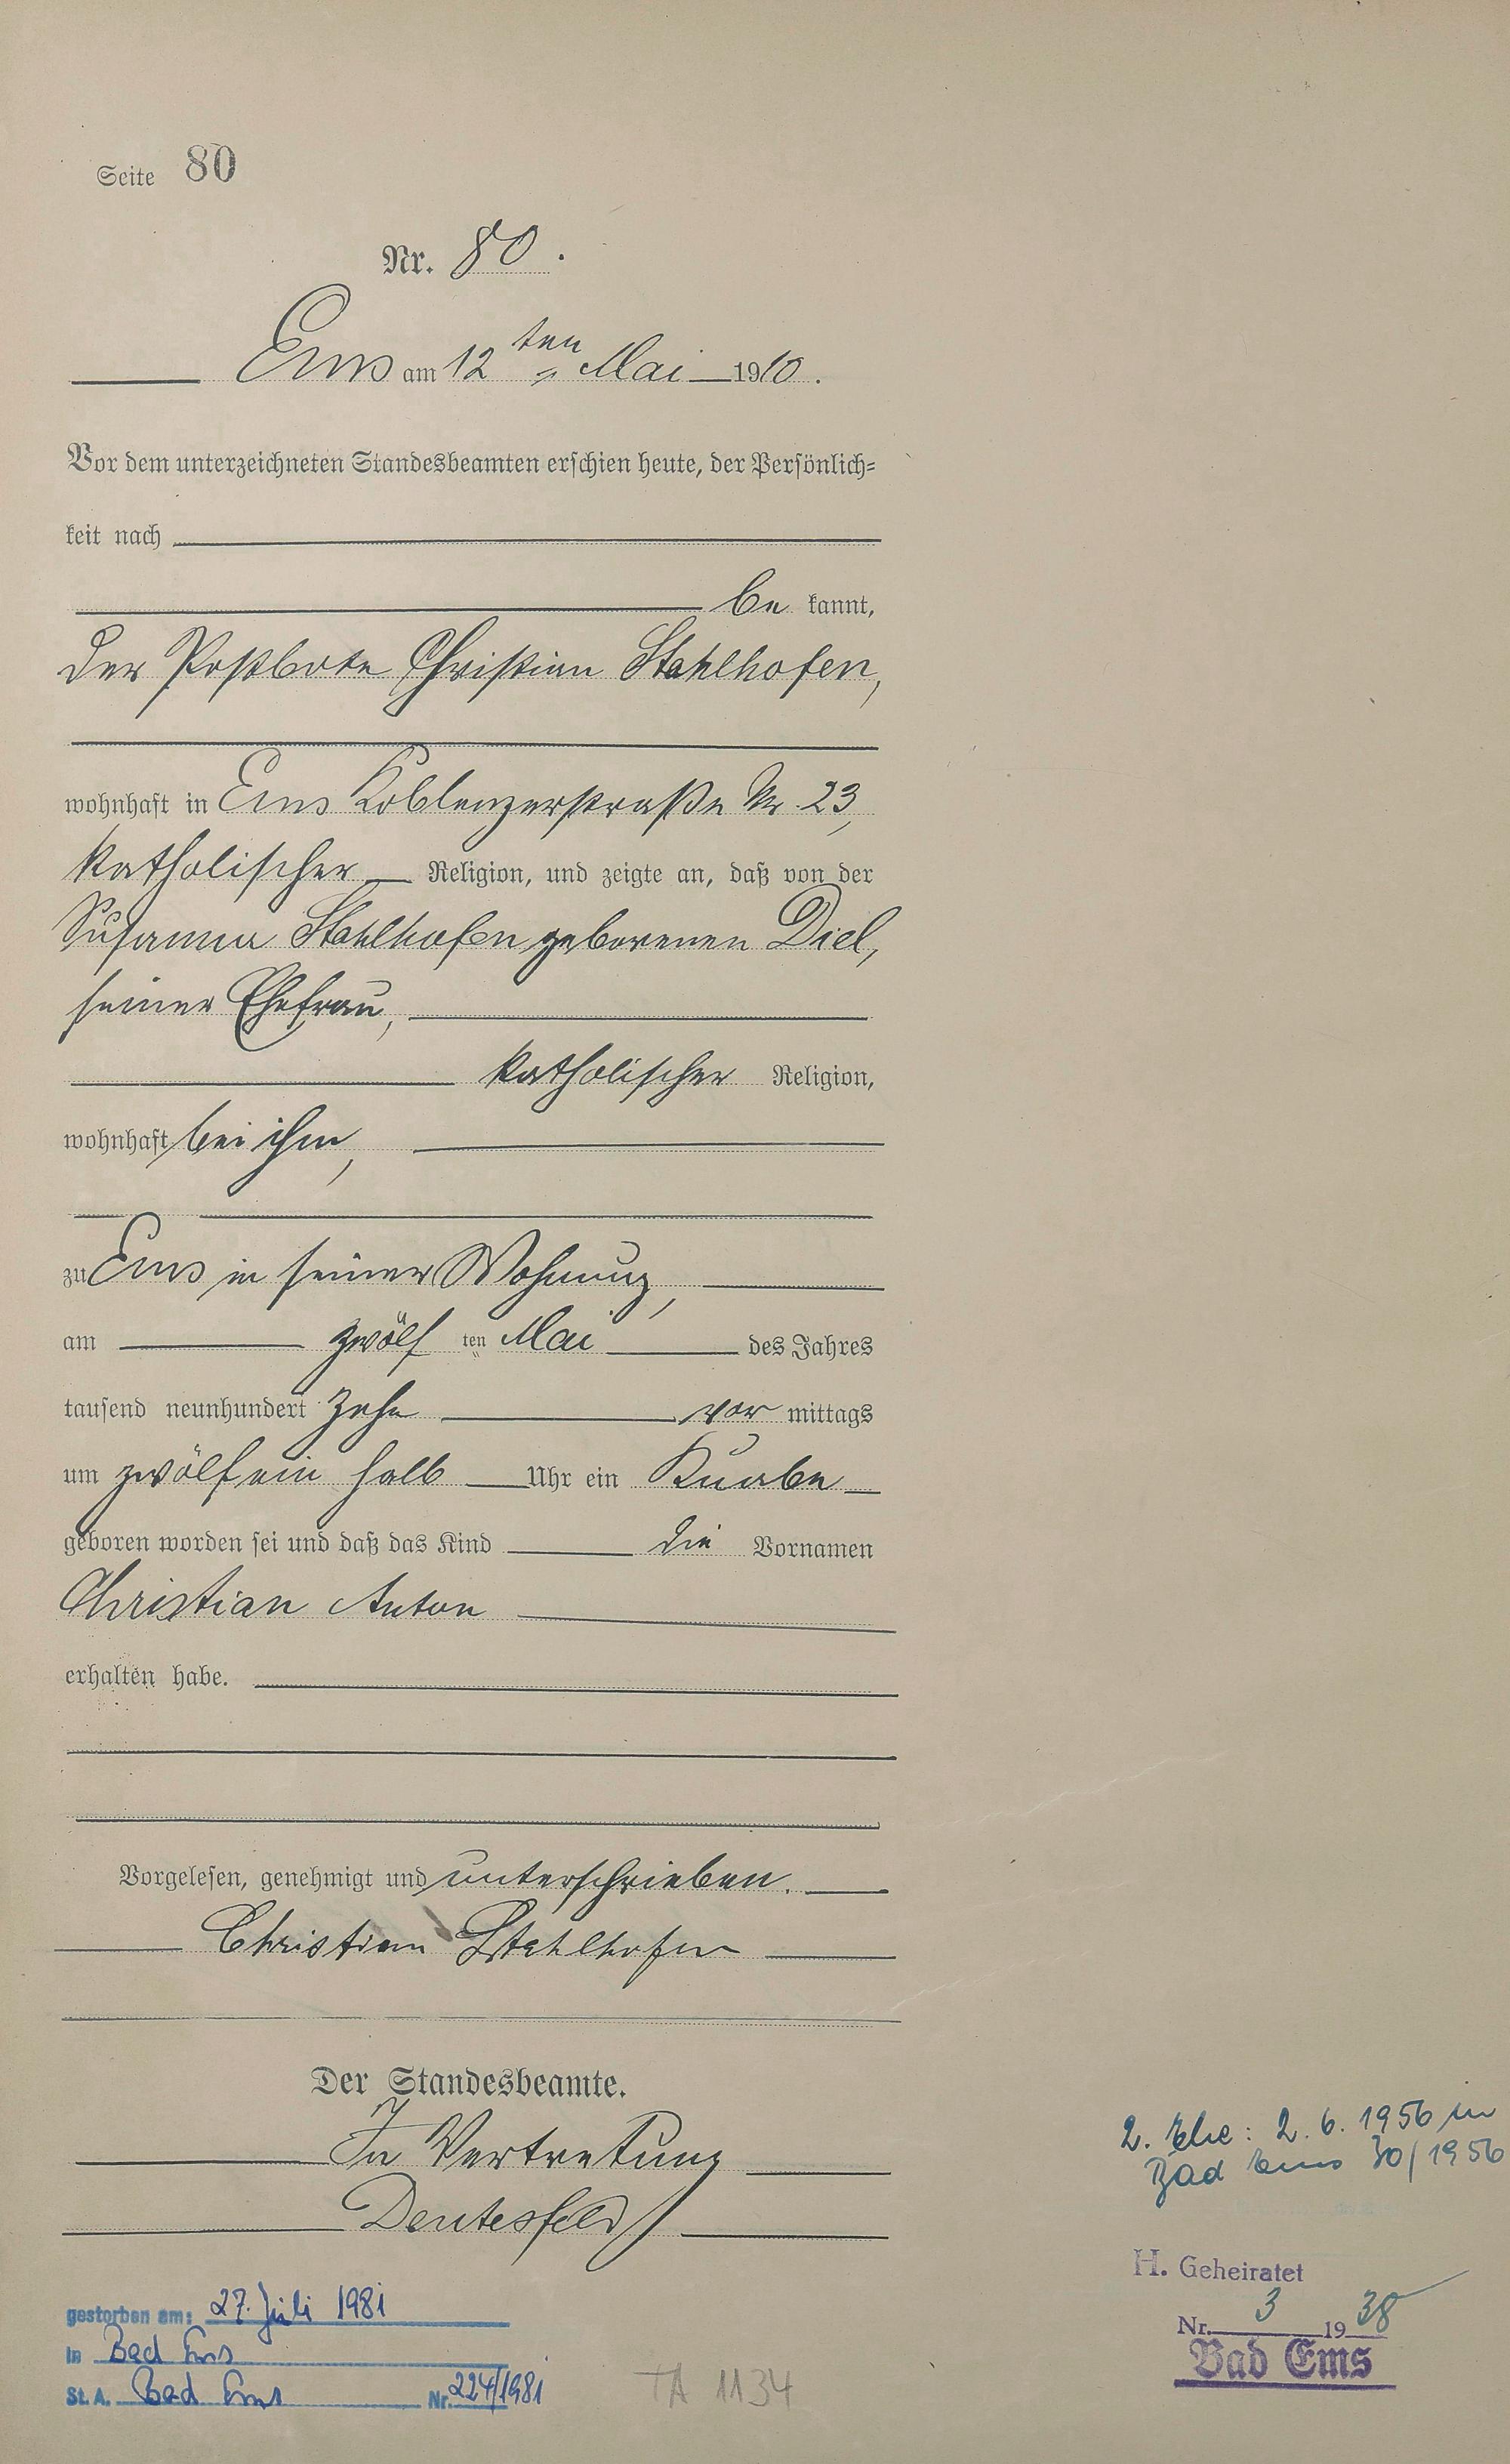 Seite 80
Nr. 80.
Ems am 12ten Mai 1910.
Vor dem unterzeichneten Standesbeamten erschien heute, der Persönlich-
keit nach
be kannt,
der Postbote Christian Stahlhofen,
wohnhaft in Ems Koblenzerstraße Nr. 23,
katholischer Religion, und zeigte an, daß von der
Susanna Stahlhofen geborenen Diel,
seiner Ehefrau,
katholischer Religion,
wohnhaft bei ihm,
zu Ems in seiner Wohnung,
am zwölf ten Mai des Jahres
tausend neunhundert zehn vor mittags
um zwölfein halb Uhr ein Knabe
geboren worden sei und daß das Kind die Vornamen
Christian Anton
erhalten habe.
Vorgelesen, genehmigt und unterschrieben.
Christian Stahlhofen
Der Standesbeamte.
In Vertretung
gestorben am: 27. Juli 1981
in Bad Ems
St. A. Bad Ems Nr. 224/1981
TA 1134
2. Ehe: 2. 6. 1956 in
Bad Ems 30/1956
H. Geheiratet
Nr. 3 1938
Bad Ems